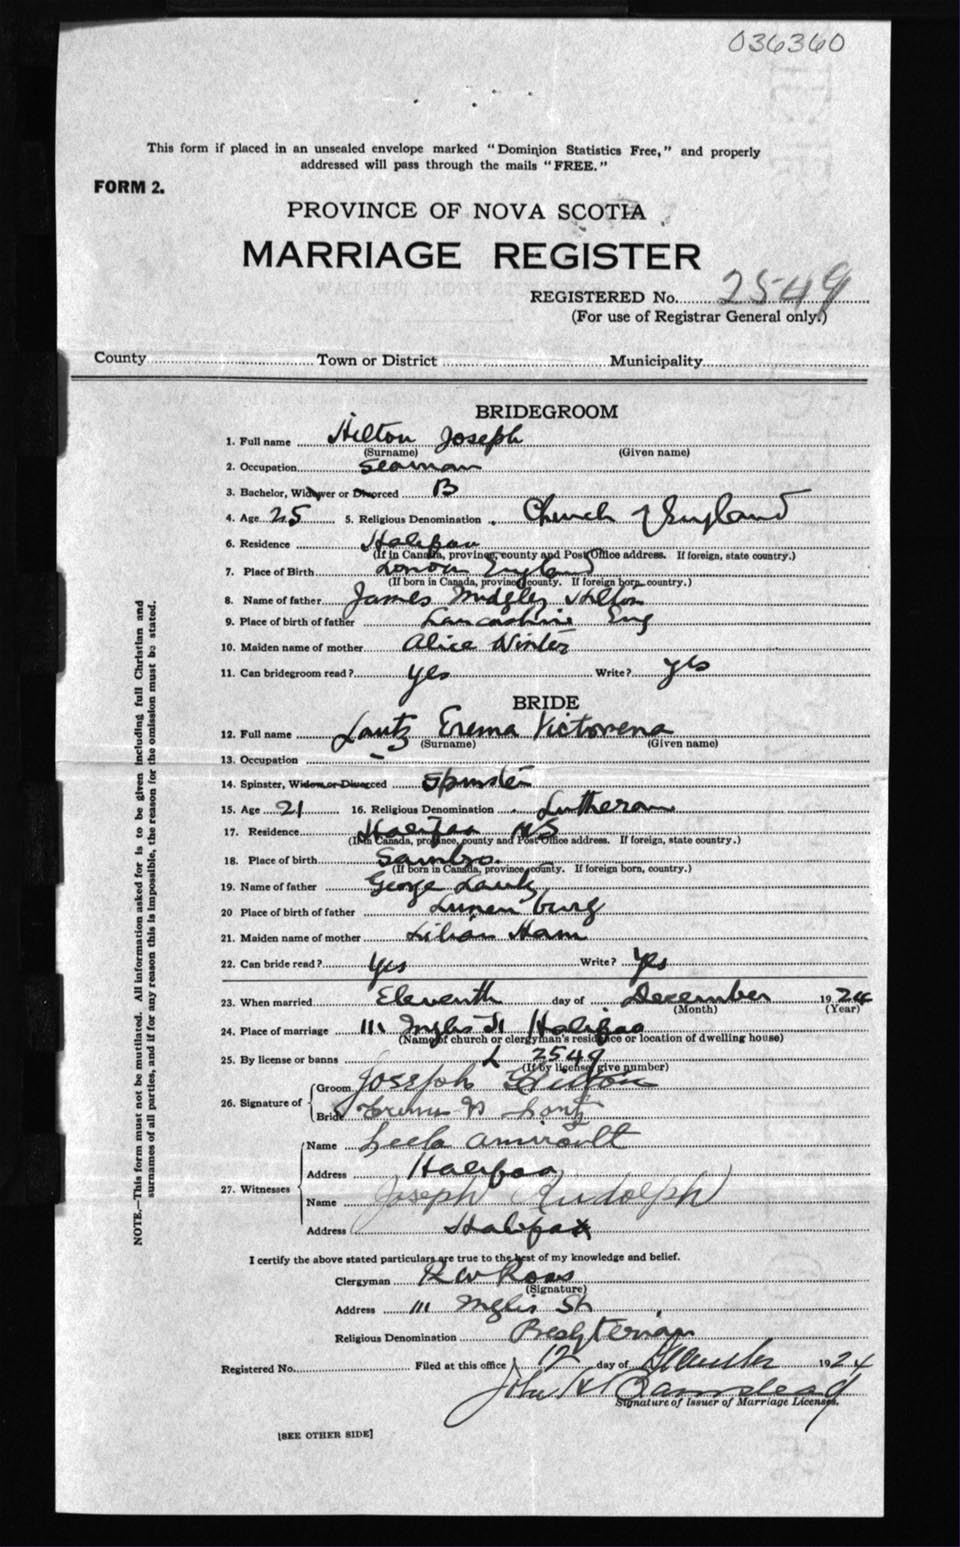 036360
This form if placed in an unsealed envelope marked "Dominion Statistics Free," and properly
addressed will pass through the mails "FREE."
FORM 2.
PROVINCE OF NOVA SCOTIA
MARRIAGE REGISTER
REGISTERED No. 2549
(For use of Registrar General only.)
County Town or District Municipality
BRIDEGROOM
1. Full name Hilton Joseph
(Surname) (Given name)
2. Occupation Seaman
3. Bachelor, Widower or Divorced B
4. Age 25 5. Religious Denomination Church of England
6. Residence Halifax
(If in Canada, province, county and Post Office address. If foreign, state country.)
7. Place of Birth London England
(If born in Canada, province, county. If foreign born, country.)
8. Name of father James Midgley Hilton
9. Place of birth of father Lancashire Eng
10. Maiden name of mother Alice Winter
11. Can bridegroom read? yes Write? yes
BRIDE
12. Full name Lautz Erema Victorena
(Surname) (Given name)
13. Occupation –
14. Spinster, Widow or Divorced Spinster
15. Age 21 16. Religious Denomination Lutheran
17. Residence Halifax NS
(If in Canada, province, county and Post Office address. If foreign, state country.)
18. Place of birth Sambro.
(If born in Canada, province, county. If foreign born, country.)
19. Name of father George Lautz
20 Place of birth of father Lunenburg
21. Maiden name of mother Lilian Ham
22. Can bride read? Yes Write? Yes
23. When married Eleventh day of December 1924
(Month) (Year)
24. Place of marriage 111 Inglis St Halifax
(Name of church or clergyman's residence or location of dwelling house)
25. By license or banns L 2549
(If by license, give number)
26. Signature of Groom Joseph Hilton
Bride
27. Witnesses Name Leela Amirault
Address Halifax
Name Joseph Rudolph
Address Halifax
I certify the above stated particulars are true to the best of my knowledge and belief.
Clergyman R W Ross
(Signature)
Address 111 Inglis St
Religious Denomination Presbyterian
Registered No. Filed at this office 12 day of December 1924
John H
Signature of Issuer of Marriage Licenses.
[SEE OTHER SIDE]
NOTE.—This form must not be mutilated. All information asked for is to be given including full Christian and
surnames of all parties, and if for any reason this is impossible, the reason for the omission must be stated.